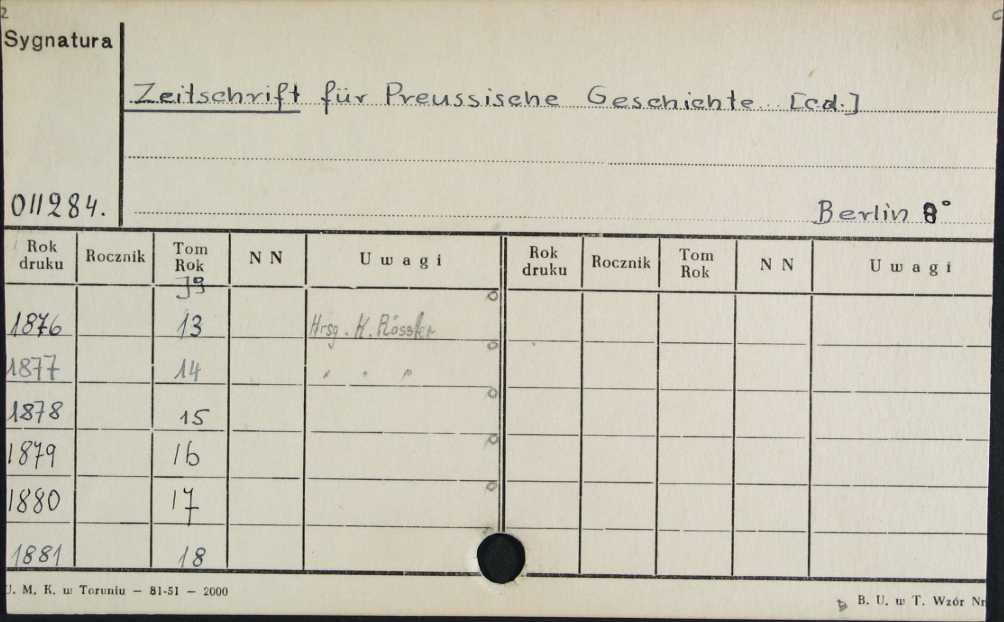 2
Sygnatura
Zeitschrift für Preussische Geschichte [cd.]
011284.
Berlin 8°
Rok druku Rocznik Tom Rok N N Uwagi Rok druku Rocznik Tom Rok N N Uwagi
Jg
1876 13 Hrsg. K. Rössler
1877 14 " " "
1878 15
1879 16
1880 17
1881 18
U. M. K. w Toruniu — 81-51 — 2000
B. U. w T. Wzór Nr